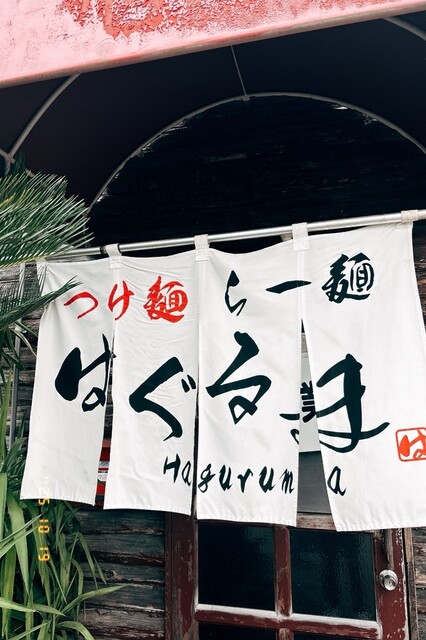 つけ麺 らー麺
はぐるま
Haguruma
は